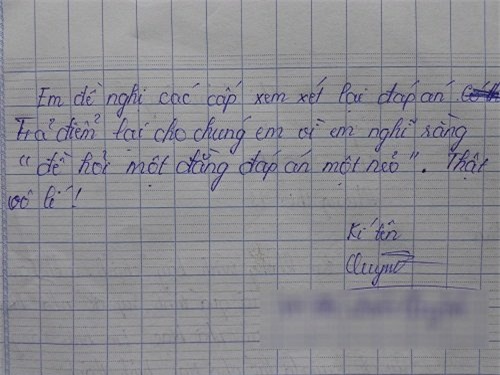 Em đề nghị các cấp xem xét lại đáp án
Trả điểm lại cho chúng em vì em nghĩ rằng
" đề hỏi một đằng đáp án một nẻo ". Thật
vô lí !
Kí tên
Quỳnh